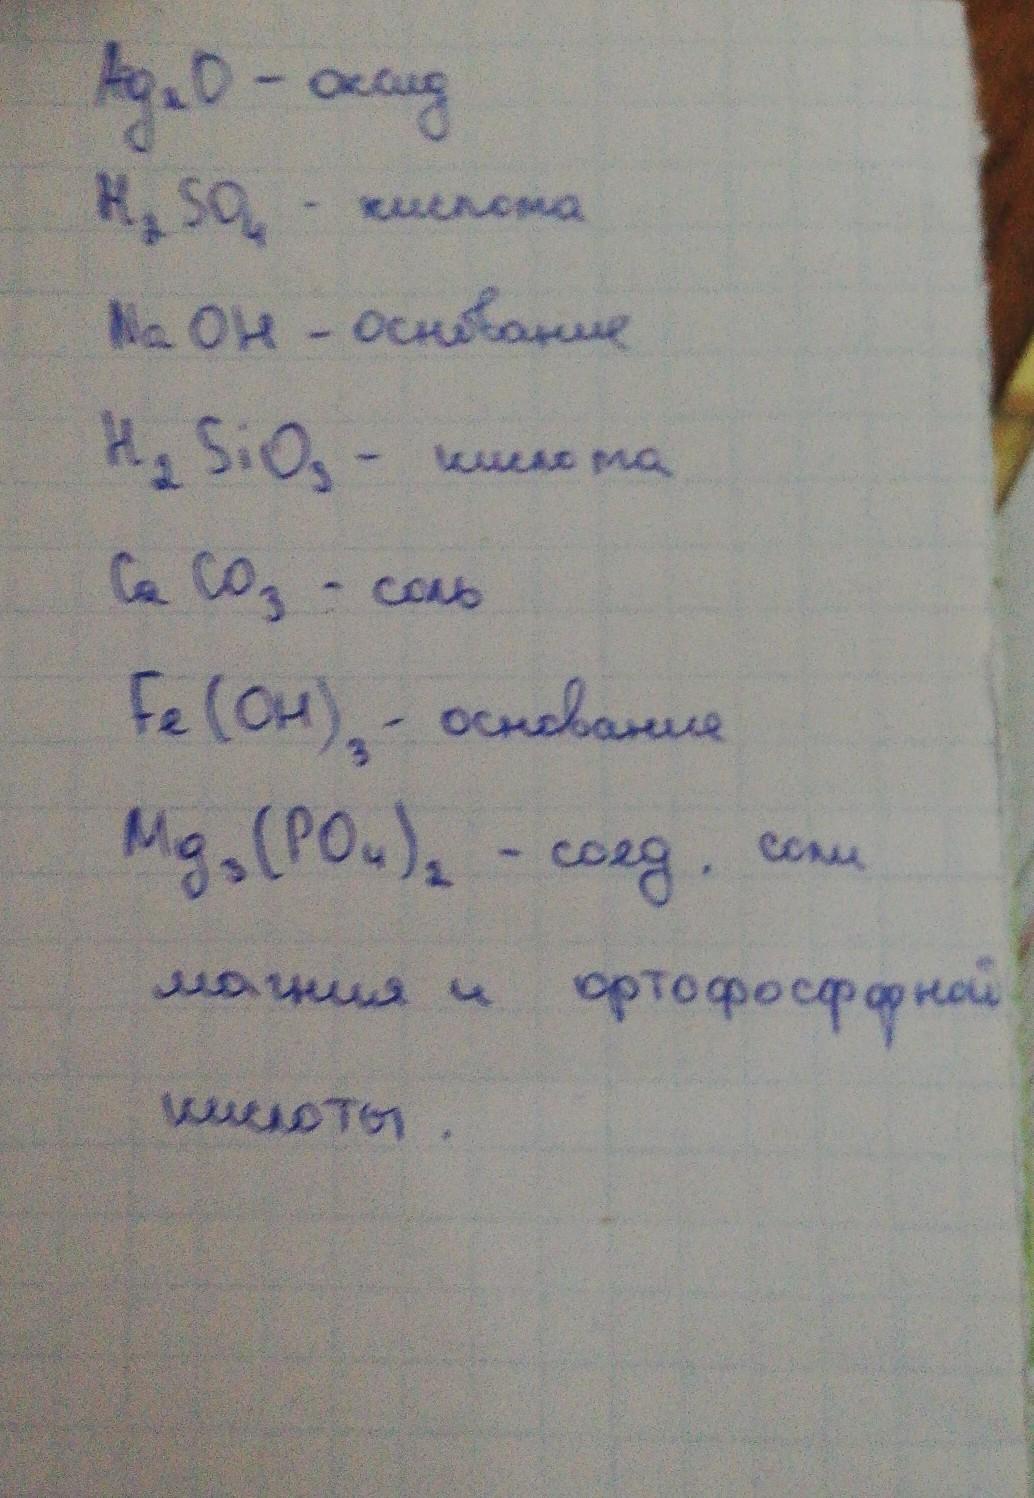 Ag₂O - оксид
H₂SO₄ - кислота
NaOH - основание
H₂SiO₃ - кислота
CaCO₃ - соль
Fe(OH)₃ - основание
Mg₃(PO₄)₂ - соед. соли
магния и ортофосффной
кислоты.